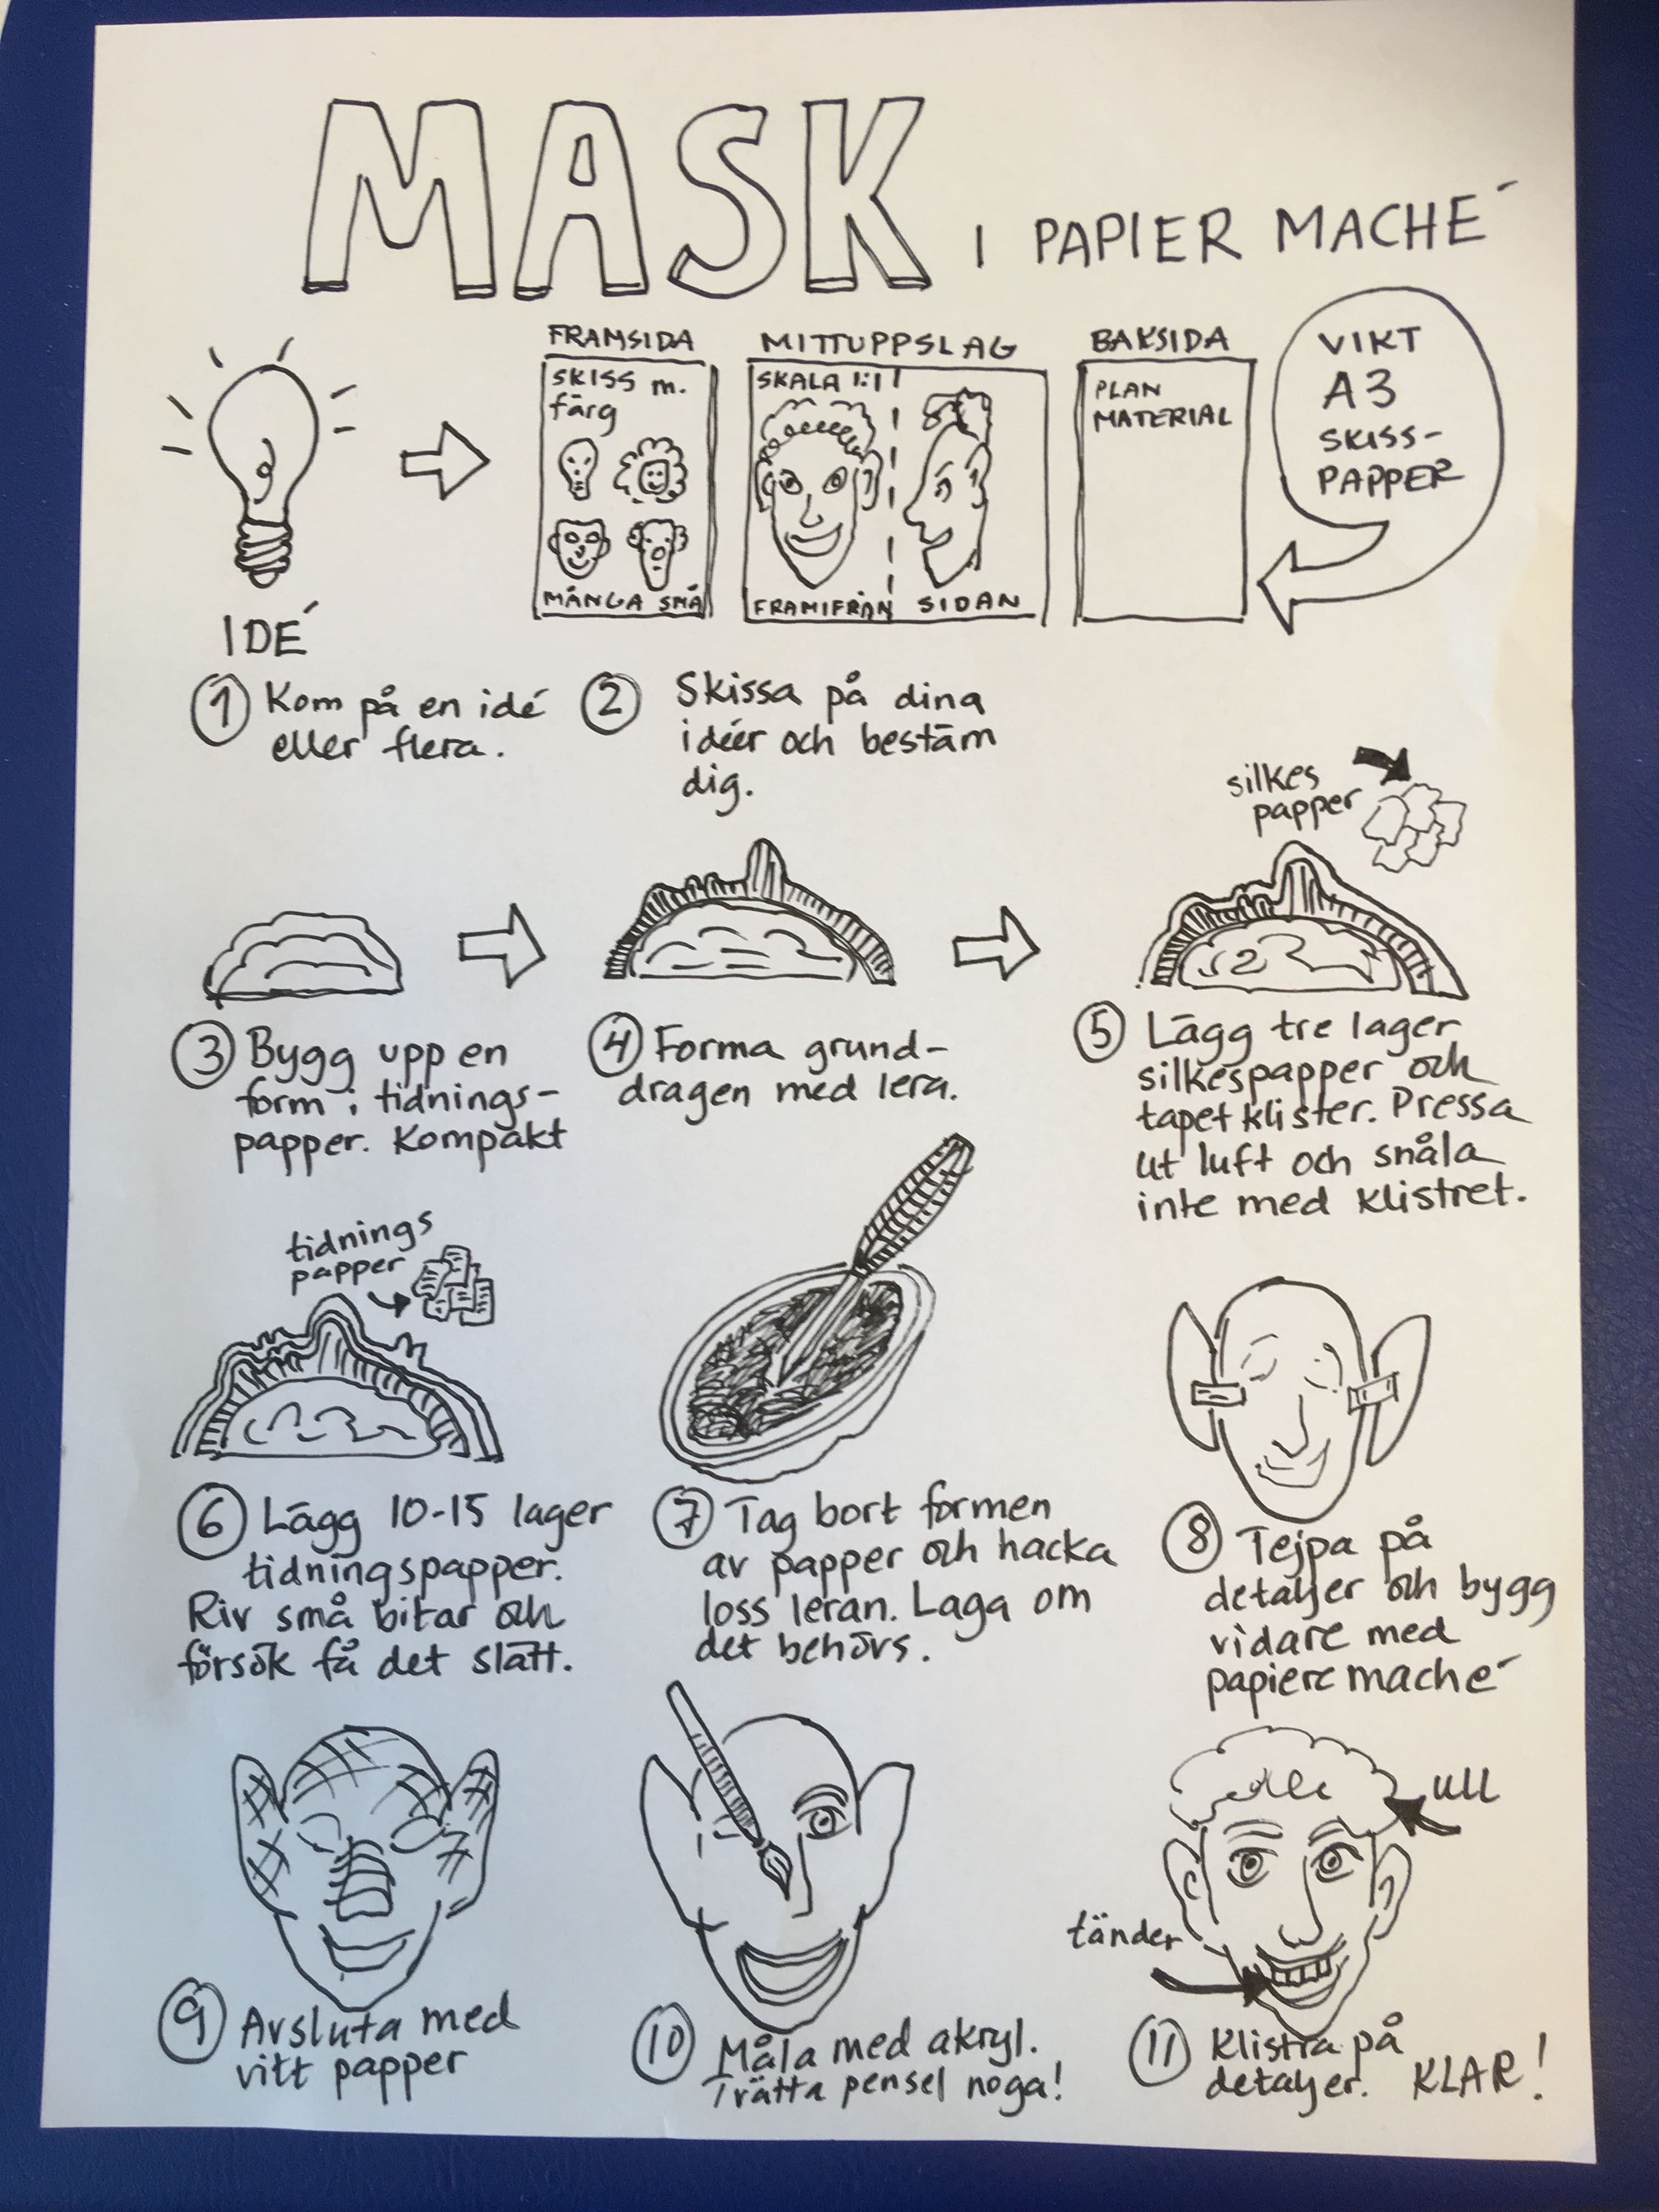 MASK I PAPIER MACHÉ
FRAMSIDA
SKISS m.
färg
MÅNGA SMÅ
MITTUPPSLAG
SKALA 1:1
FRAMIFRÅN SIDAN
BAKSIDA
PLAN
MATERIAL
VIKT
A3
SKISS-
PAPPER
IDÉ
1 Kom på en idé
eller flera.
2 Skissa på dina
idéer och bestäm
dig.
3 Bygg upp en
form i tidnings-
papper. Kompakt
4 Forma grund-
dragen med lera.
silkes
papper
5 Lägg tre lager
silkespapper och
tapetklister. Pressa
ut luft och snåla
inte med klistret.
tidnings
papper
6 Lägg 10-15 lager
tidningspapper.
Riv små bitar och
försök få det slätt.
7 Tag bort formen
av papper och hacka
loss leran. Laga om
det behövs.
8 Tejpa på
detaljer och bygg
vidare med
papiere maché
9 Avsluta med
vitt papper
10 Måla med akryl.
Tvätta pensel noga!
ull
tänder
11 Klistra på
detaljer. KLAR!